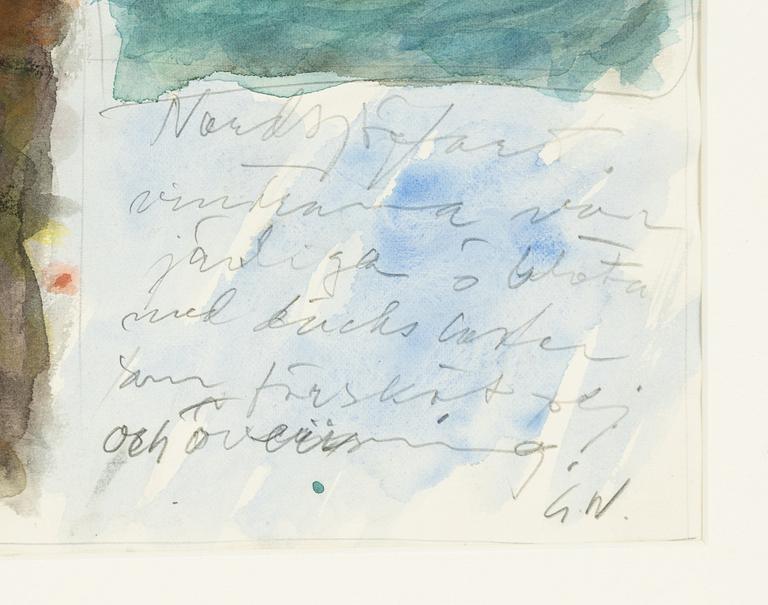 Nordsjöfart.
vintrarna var
jävliga ö blöta
med däcks laster
som försköt sej
och överisning.
G.W.